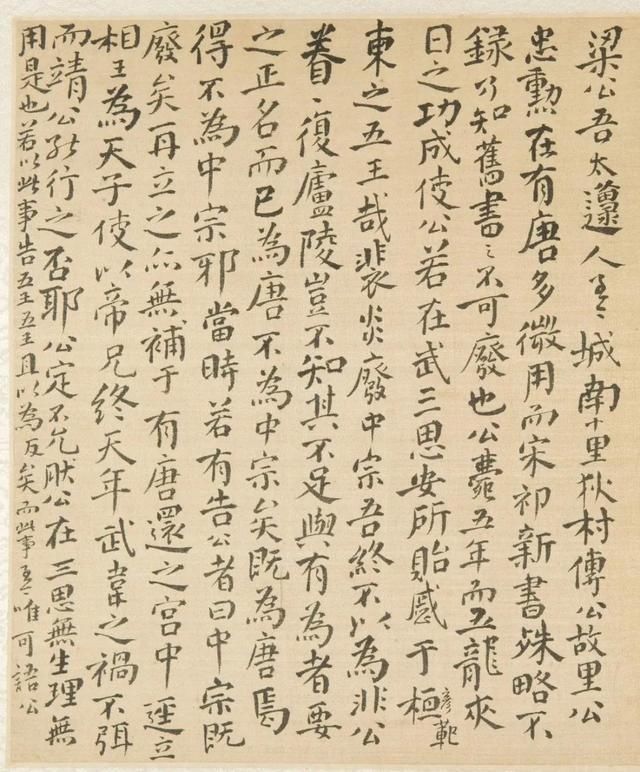 梁公吾太邍人城南十里狄村傳公故里公
忠勳在有唐多微用而宋祁新書殊略不
錄乃知舊書〻不可廢也公薨五年而五龍夾
日之功成使公若在武三思安所貽慼于桓彥範
東之五王哉裴炎廢中宗吾終不以為非公
眷〻復廬陵豈不知其不足與有為者要
之正名而已為唐不為中宗矣既為唐焉
得不為中宗邪當時若有告公者曰中宗既
廢矣再立之亦無補于有唐還之宮中逕立
相王為天子使以帝兄終天年武韋之禍不弭
而靖公能行之否耶公定不允肰公在三思無生理無
用是也若以此事告五王五王且以為反矣而此事唯可語公